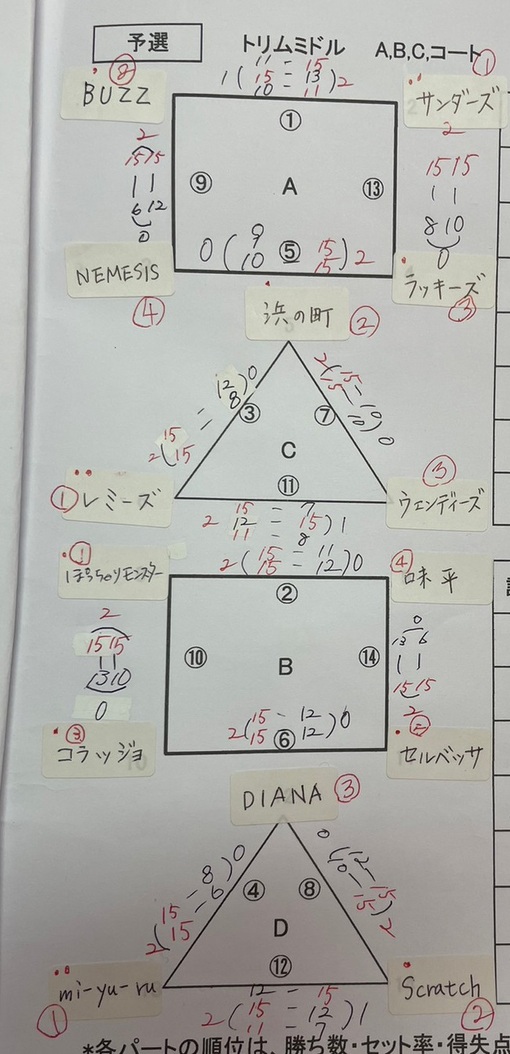 予選 トリムミドル A,B,C,コート
BUZZ ②
11 = 15
1 ( 15 = 13 ) 2
10 = 11
サンダーズ ①
①
2
15 15
| |
6 12
0
⑨ A ⑬
2
15 15
| |
8 10
0
0 ( 9 15 ) 2
10 ⑤ 15
NEMESIS ④
ラッキーズ ③
浜の町 ②
2 ( 15 - 12 ) 0
15 = 8
③
2 ( 15 - 10 ) 0
15 - 10
⑦
C
⑪
① レミーズ
ウェンディーズ ③
15 = 7
2 12 = 15 ) 1
11 = 8
① ぽっちゃりモンスター
2 ( 15 = 11 ) 0
15 = 12
④ 味平
②
2
15 15
| |
13 10
0
⑩ B ⑭
0
13 6
| |
15 15
2
2 ( 15 - 12 ) 0
15 ⑥ 12
③ コラッジョ
② セルベッサ
DIANA ③
2 ( 15 - 8 ) 0
15 - 6
④
0 ( 12 - 15 ) 2
10 - 15
⑧
D
⑫
mi-yu-ru ①
Scratch ②
12 = 15
2 ( 15 = 12 ) 1
11 = 7
*各パートの順位は、勝ち数・セット率・得失点